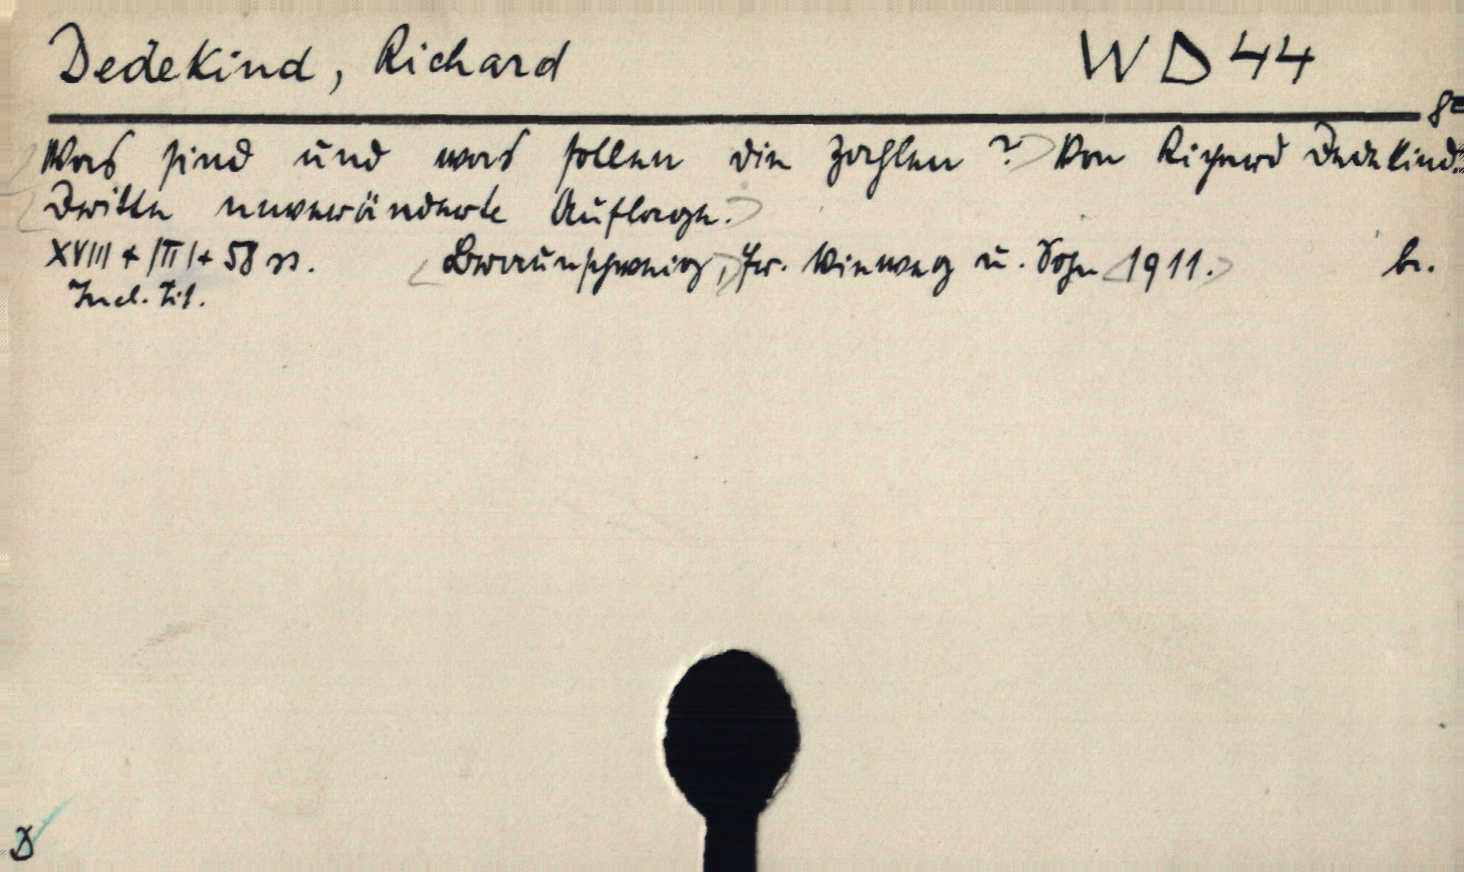 Dedekind, Richard WD44
8°
Was sind und was sollen die Zahlen? Von Richard Dedekind.
Dritte unveränderte Auflage.
XVIII + |III| + 58 ss. Braunschweig, Fr. Vieweg u. Sohn 1911. br.
Incl. Tit.
D